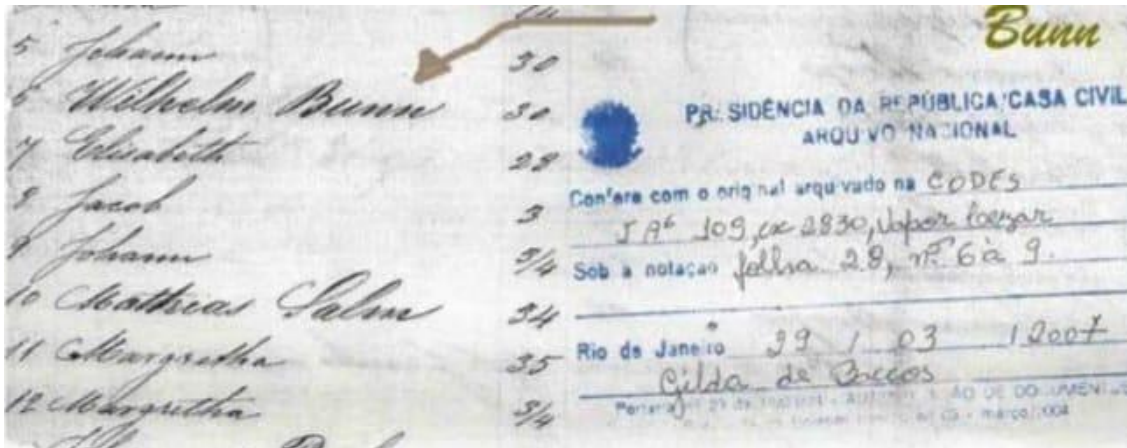 14
5 Johann 30
6 Wilhelm Bunn 30
7 Elisabeth 28
8 Jacob 3
9 Johann 3/4
10 Mathias Salm 34
11 Margretha 35
12 Margretha 3/4
Bunn
PRESIDÊNCIA DA REPÚBLICA/CASA CIVIL
ARQUIVO NACIONAL
Confere com o original arquivado na CODES
109, cx 2830, Vapor
Sob a notação folha 28, nº 6 à 9.
Rio de Janeiro 29 / 03 / 2007
Gilda de
março